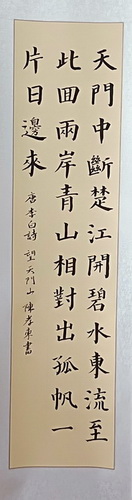 天門中斷楚江開碧水東流至
此回兩岸青山相對出孤帆一
片日邊來
唐李白詩 望天門山 陳孝東書